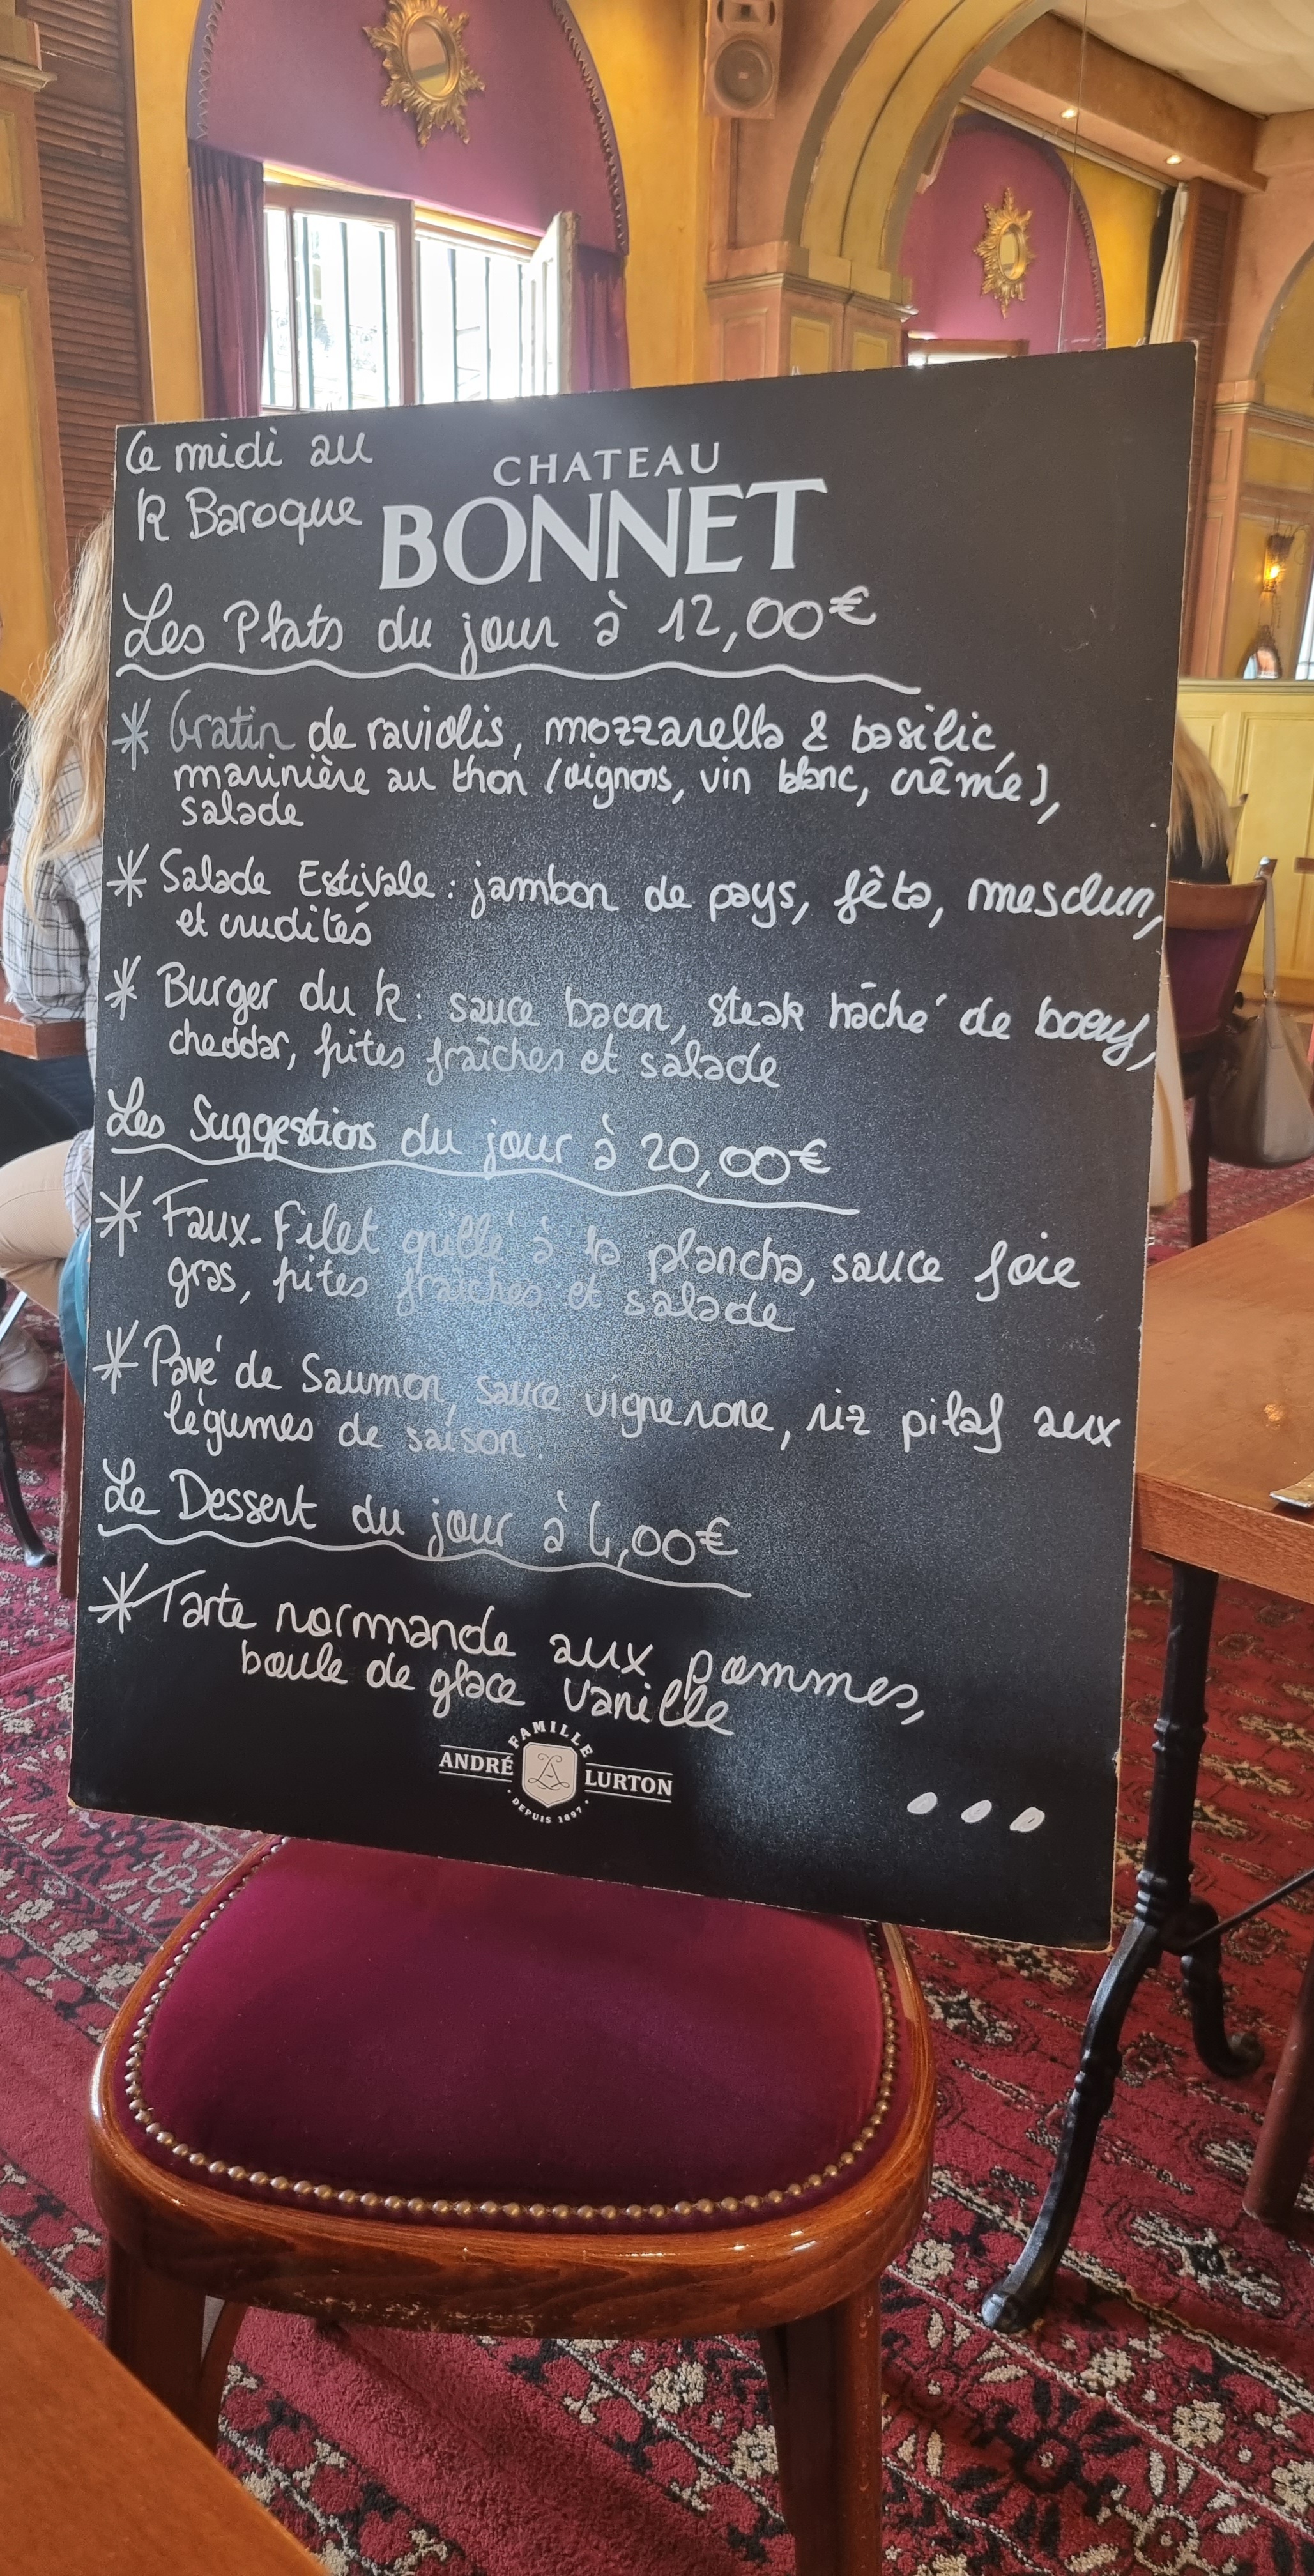 Ce midi au
K Baroque
CHATEAU
BONNET
Les Plats du jour à 12,00€
* Gratin de raviolis, mozzarella & basilic,
marinière au thon (oignons, vin blanc, crême),
salade
* Salade Estivale : jambon de pays, fêta, mesclun,
et crudités
* Burger du K : sauce bacon, steak hâché de boeuf,
cheddar, frites fraîches et salade
Les Suggestions du jour à 20,00€
* Faux-Filet grillé à la plancha, sauce foie
gras, frites fraîches et salade
* Pavé de Saumon, sauce vigneronne, riz pilaf aux
légumes de saison.
Le Dessert du jour à 4,00€
* Tarte normande aux pommes,
boule de glace vanille
FAMILLE
ANDRÉ LURTON
DEPUIS 1897
...